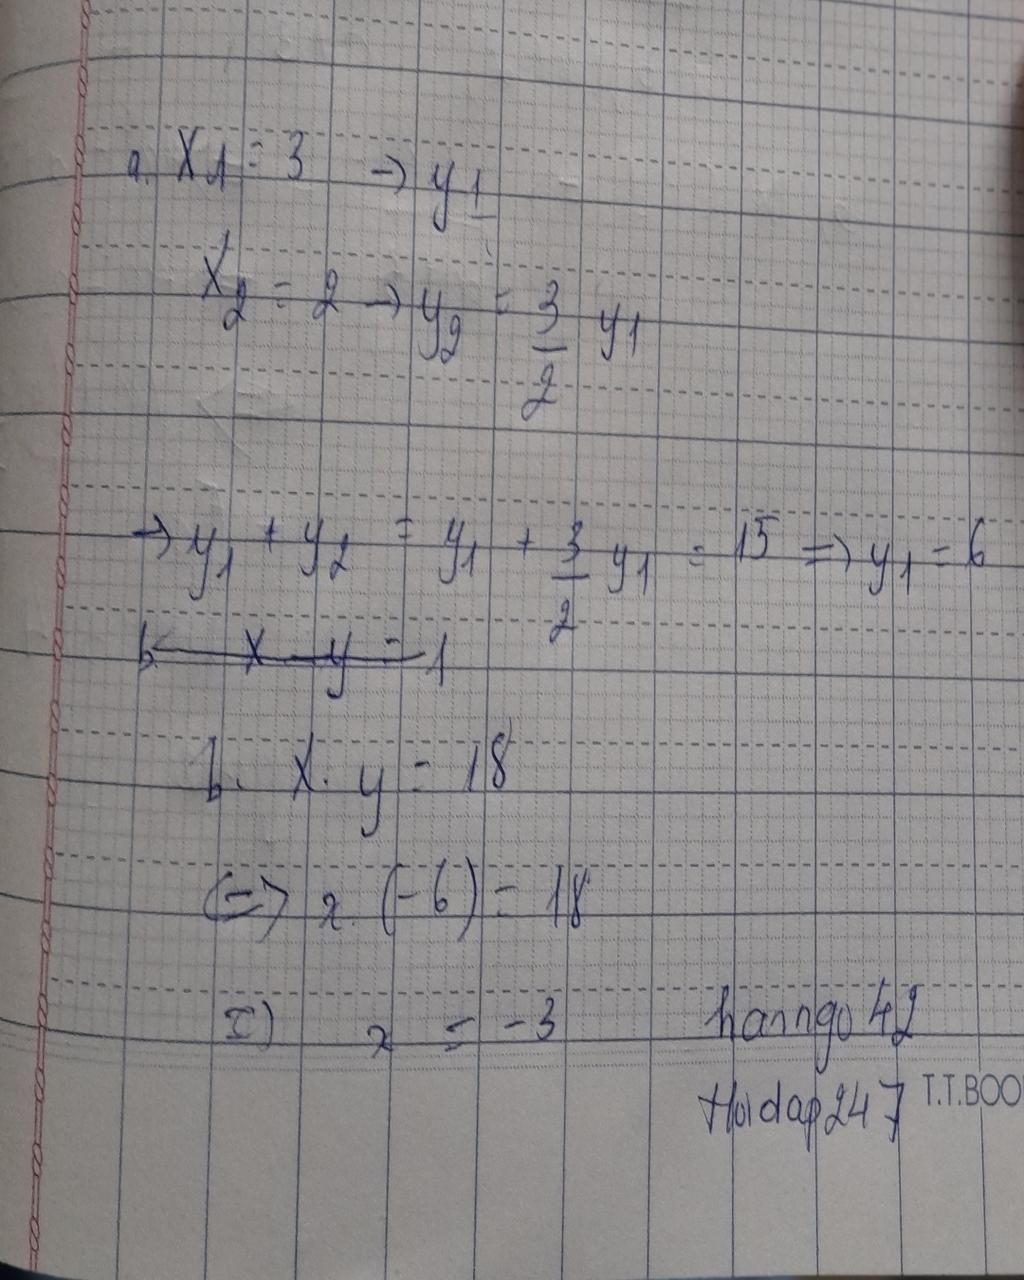 a. X1 = 3 → y1
X2 = 2 → y2 = 3/2 y1
→ y1 + y2 = y1 + 3/2 y1 = 15 => y1 = 6
b. X y = 1
b. X. y = 18
<=> x. (-6) = 18
=> x = -3
hanngo42
Hoidap247
T.T.BOO